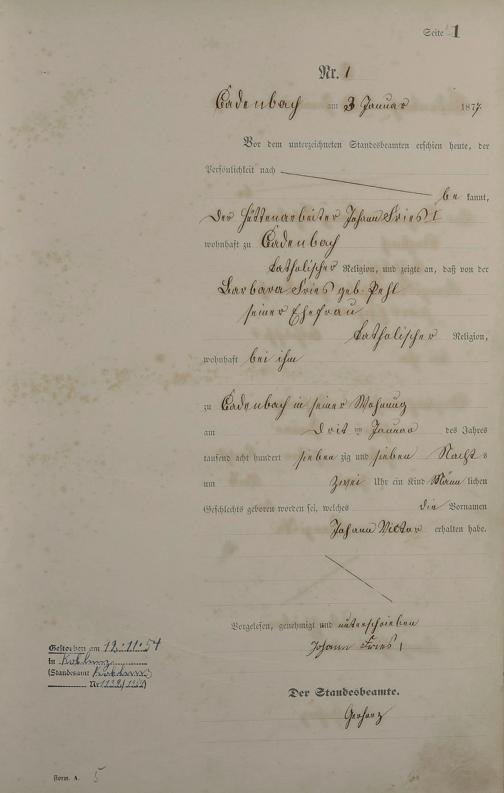 Seite 1
Nr. 1
Cadenbach am 3 Januar 1877.
Vor dem unterzeichneten Standesbeamten erschien heute, der
Persönlichkeit nach
be kannt,
der Hüttenarbeiter Johann Fries I
wohnhaft zu Cadenbach
katholischer Religion, und zeigte an, daß von der
Barbara Fries geb. Pehl
seiner Ehefrau
katholischer Religion,
wohnhaft bei ihm
zu Cadenbach in seiner Wohnung
am drit en Januar des Jahres
tausend acht hundert sieben zig und sieben Nacht s
um zwei Uhr ein Kind männ lichen
Geschlechts geboren worden sei, welches die Vornamen
Johann Victor erhalten habe.
Vorgelesen, genehmigt und unterschrieben
Johann Fries I
Der Standesbeamte.
Gerharz
Gestorben am 12.11.54
in Koblenz
(Standesamt Koblenz
Nr.
Form. A. 5